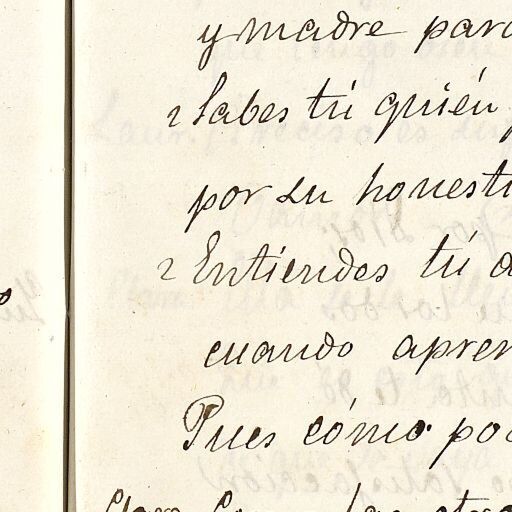 y madre para
¿Sabes tú quién
por su honesti
¿Entiendes tú
cuando apren
Pues cómo po